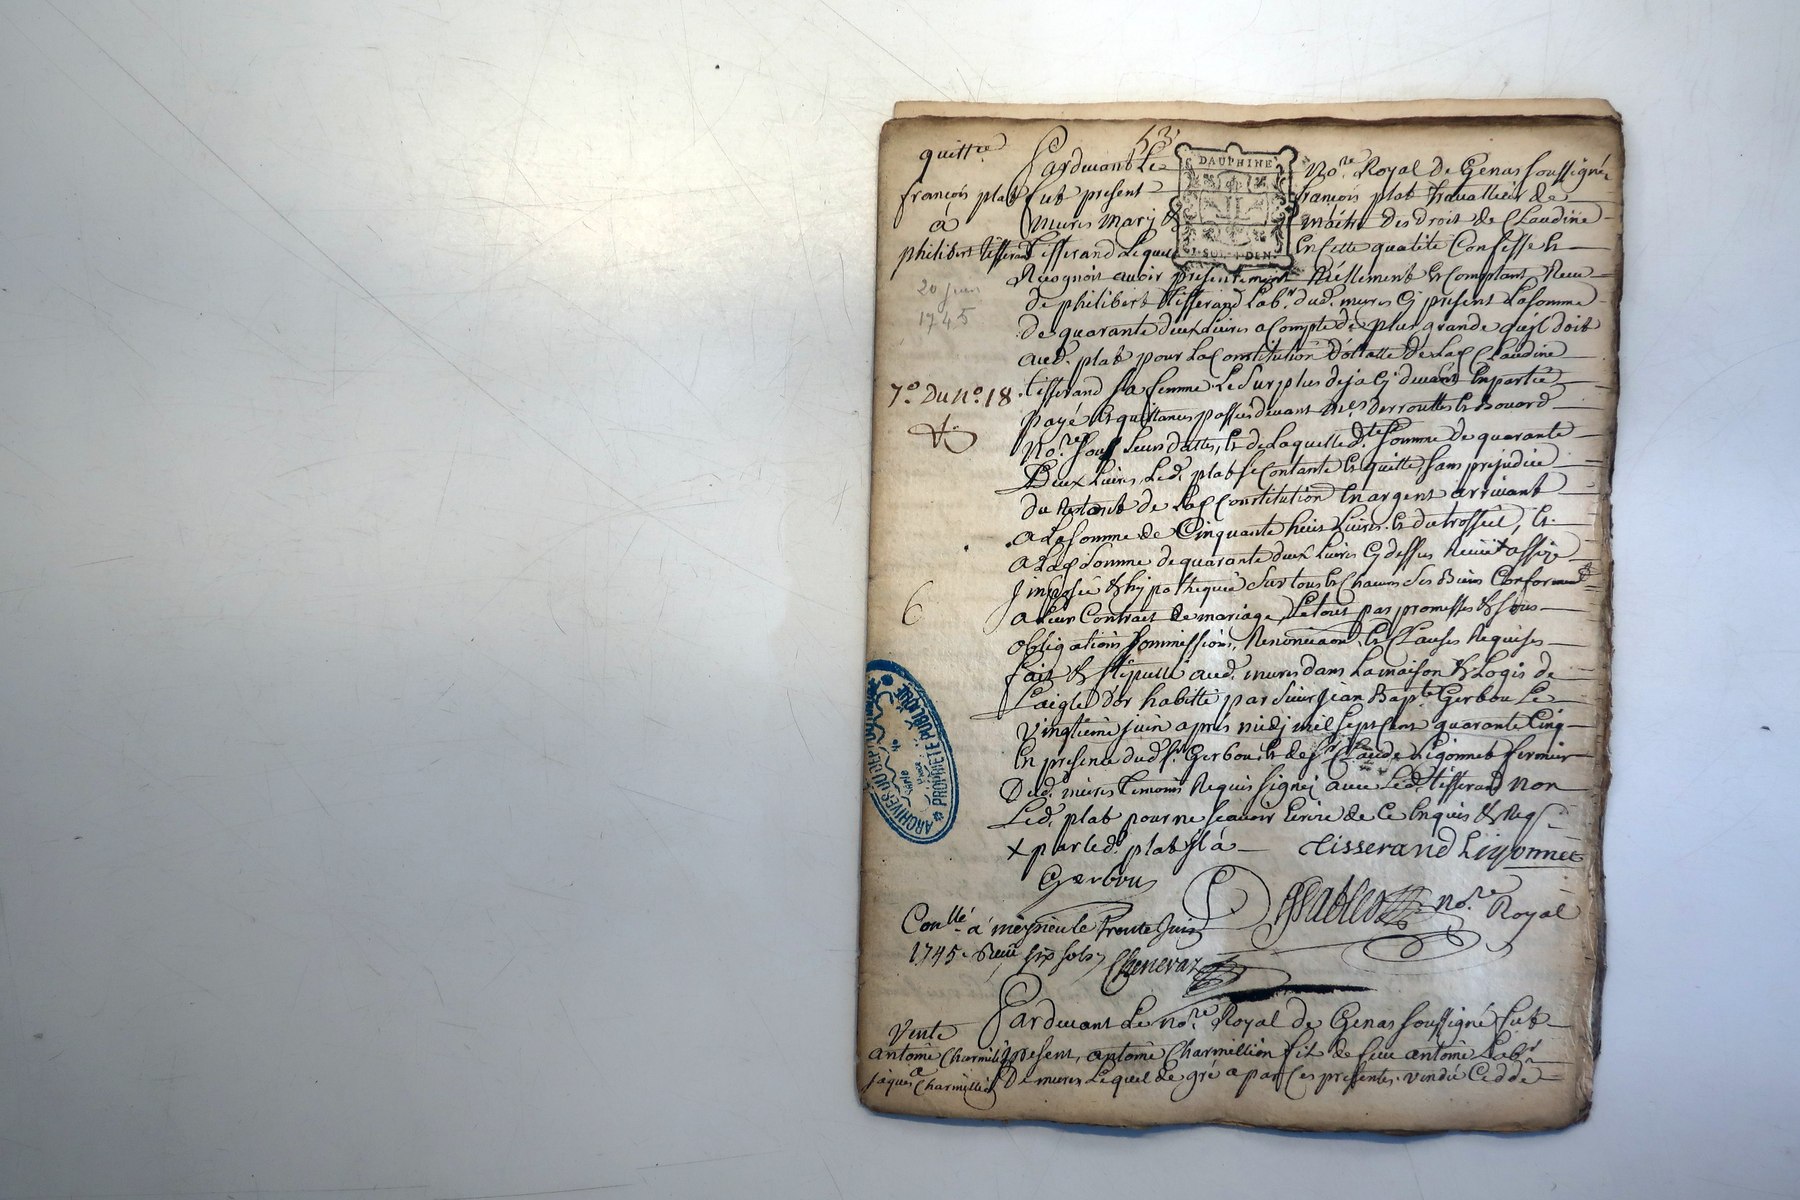 53
quitt.ce
françois plat
à
philibert tisserand
20 juin
1745
7.o Du n.o 18
6
DAUPHINE
1·SOL·4·DEN
Pardevant Le No.re Royal de Genas soussigné
fut present françois plat travallieur de
mures mary & maitre des droit de Claudine
tisserand Lequel En Cette qualité Confesse &
Recognoit avoir presentement Réellement & Comptant Receu
de philibert tisserand Lab.r dud. mures Cy present La somme
de quarante deux Livres a Compte de plus grande qu'il doit
aud. plat pour La Constitution dottalle de Lad. Claudine
tisserand sa femme Le Surplus deja Cy devant En partie
payé & quittances passés devant M.es Derrouttes & Bouard
No.res sous Leurs dattes, & de Laquelle d.te somme de quarante
Deux Livres, Led. plat se Contante & quitte, sans prejudice
du Restant de Lad. Constitution En argent arrivant
a La somme de Cinquante huit Livres & du trosseil, &
a Lad. somme de quarante deux Livres Cy dessus Receue x assize
Imposée & hypothequée Sur tous & Chacuns Ses Biens Conformem.t
a Leur Contract de mariage, Le tout par promesses & sous
obligations sommissions, Renonciaōns & Clauses Requises
fait & stipullé aud. mures dans La maison & Logis de
Laigle D'or habitté par Sieur Jean Bap.te Gerbou Le
vingtieme juin après midy mil Sept Cent quarante Cinq
En presence dud. s.r Gerbou & de s.r Claude Ligonnet fermier
Dud. mures temoins Requis signés avec Led. tisserand non
Led. plat pour ne scavoir Ecrire de Ce Enquis & Reqs
x par led. plat il a
tisserand Liyonnet
Gerbou
Pablo no.re Royal
Con.llé à meyzieu le trente Juin
1745. Receu six sols
Chenevaz
ARCHIVES DU DEPARTEMENT
PROPRIÉTÉ PUBLIQUE
Vente
antoine Charmillion
a
jaques Charmillion
Pardevant Le no.re Royal de Genas soussigné fut
present, antoine Charmillion fils de feu antoine Lab.r
De mures Lequel de gré a par Ces presentes vendu Cedde